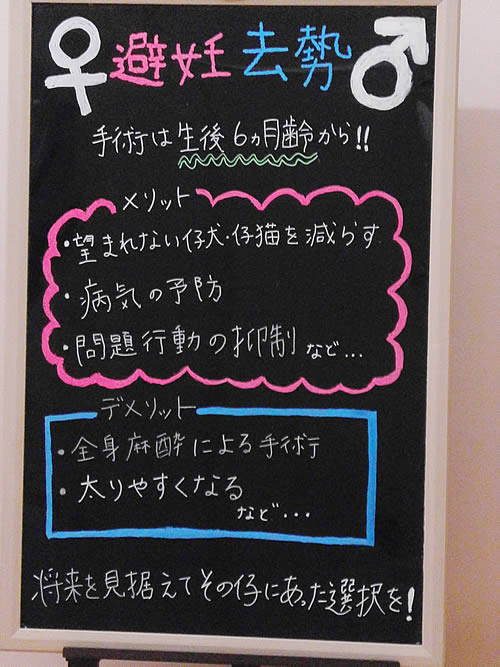 ♀避妊 去勢♂
手術は生後6ヵ月齢から!!
メリット
・望まれない仔犬・仔猫を減らす
・病気の予防
・問題行動の抑制 など...
デメリット
・全身麻酔による手術
・太りやすくなる
など・・・
将来を見据えてその仔にあった選択を!